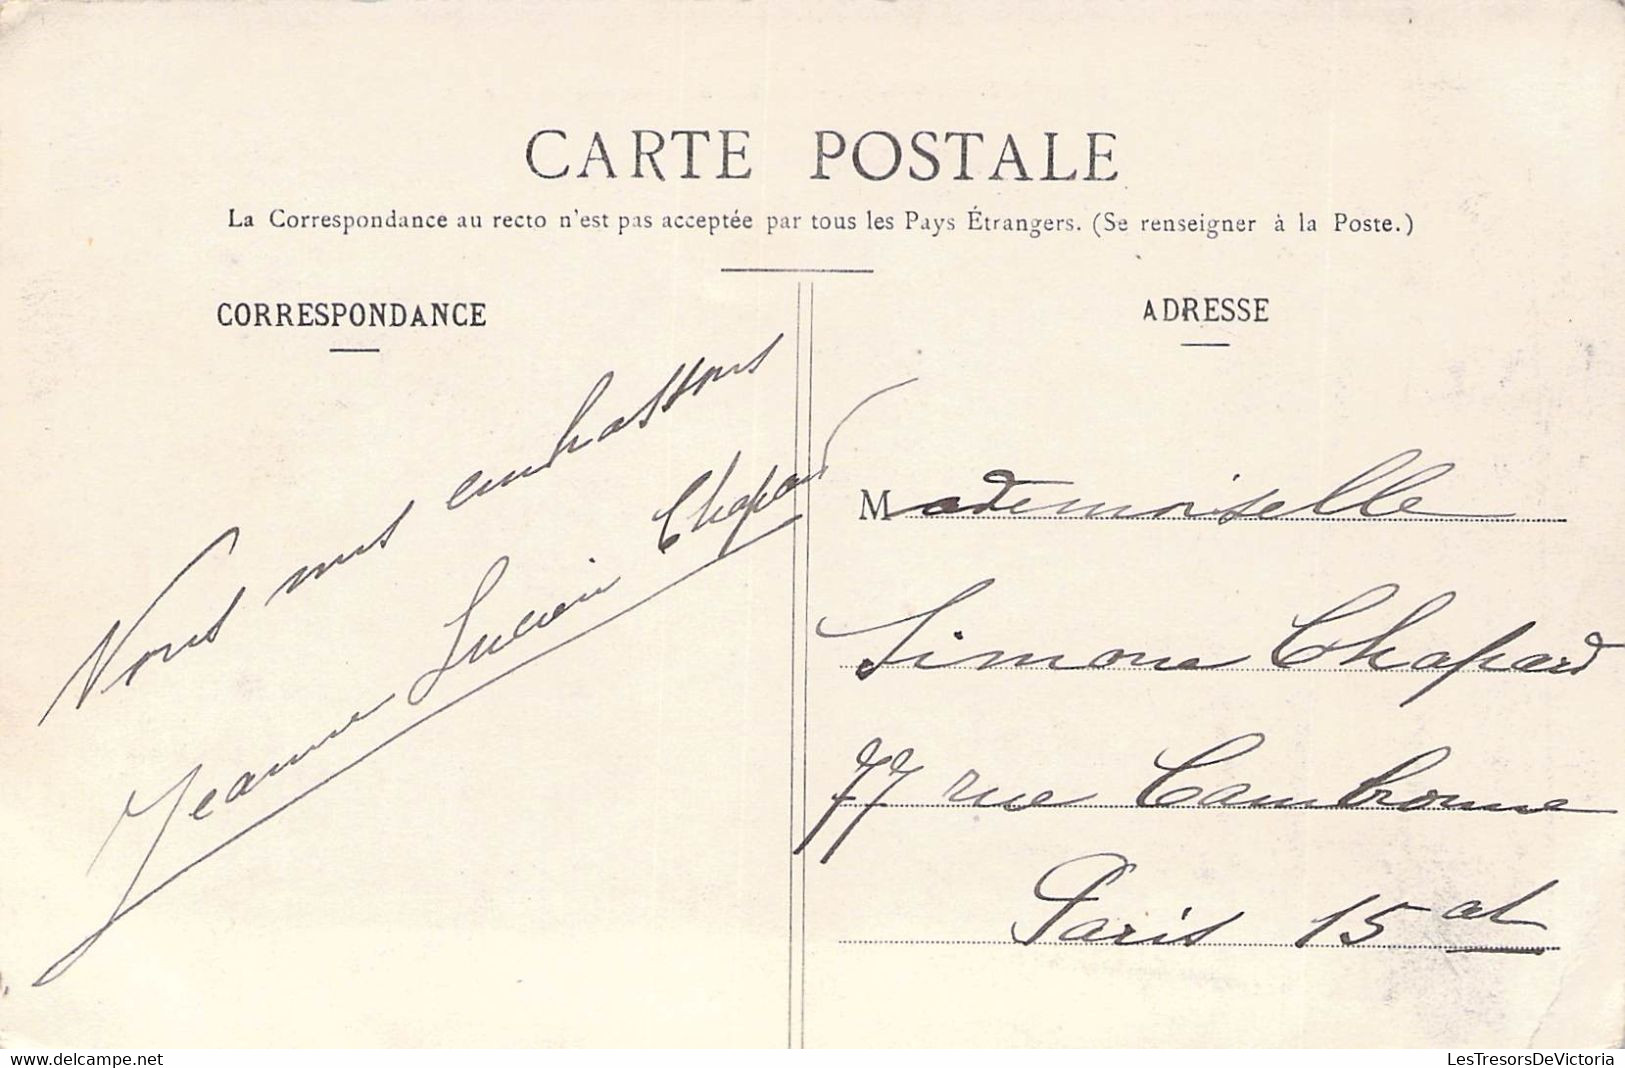 CARTE POSTALE
La Correspondance au recto n'est pas acceptée par tous les Pays Étrangers. (Se renseigner à la Poste.)
CORRESPONDANCE
Vous nous embrassons
Jeanne Lucien Chapard
ADRESSE
Mademoiselle
Simone Chapard
77 rue Cambronne
Paris 15 at
www.delcampe.net
LesTresorsDeVictoria